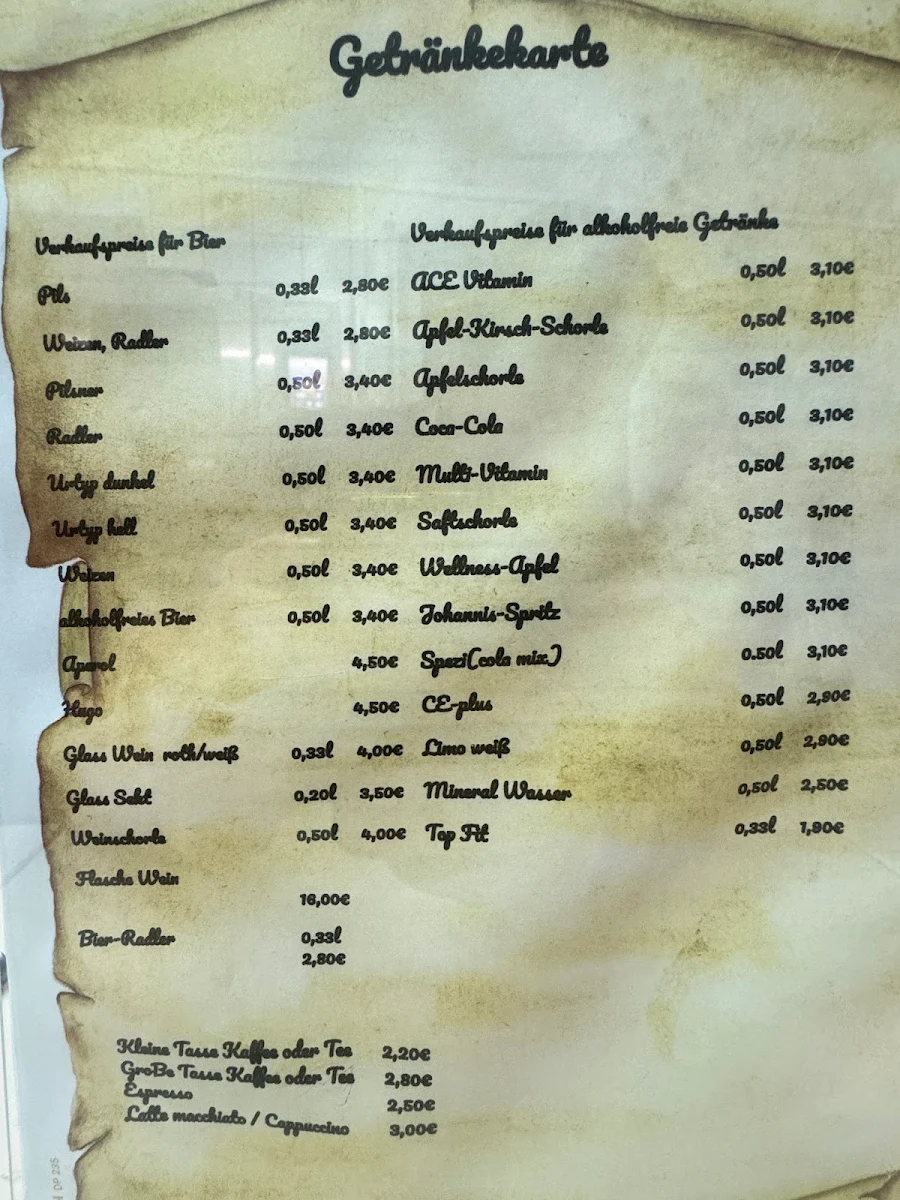 Getränkekarte
Verkaufspreise für Bier
Pils 0,33l 2,80€
Weizen, Radler 0,33l 2,80€
Pilsner 0,50l 3,40€
Radler 0,50l 3,40€
Urtyp dunkel 0,50l 3,40€
Urtyp hell 0,50l 3,40€
Weizen 0,50l 3,40€
alkoholfreies Bier 0,50l 3,40€
Aperol 4,50€
Hugo 4,50€
Glass Wein roth/weiß 0,33l 4,00€
Glass Sekt 0,20l 3,50€
Weinschorle 0,50l 4,00€
Flasche Wein
16,00€
Bier-Radler 0,33l
2,80€
Verkaufspreise für alkoholfreie Getränke
ACE Vitamin 0,50l 3,10€
Apfel-Kirsch-Schorle 0,50l 3,10€
Apfelschorle 0,50l 3,10€
Coca-Cola 0,50l 3,10€
Multi-Vitamin 0,50l 3,10€
Saftschorle 0,50l 3,10€
Wellness-Apfel 0,50l 3,10€
Johannis-Spritz 0,50l 3,10€
Spezi(cola mix) 0.50l 3,10€
CE-plus 0,50l 2,90€
Limo weiß 0,50l 2,90€
Mineral Wasser 0,50l 2,50€
Top Fit 0,33l 1,90€
Kleine Tasse Kaffee oder Tee 2,20€
GroBe Tasse Kaffee oder Tee 2,80€
Espresso 2,50€
Latte macchiato / Cappuccino 3,00€
DP 235